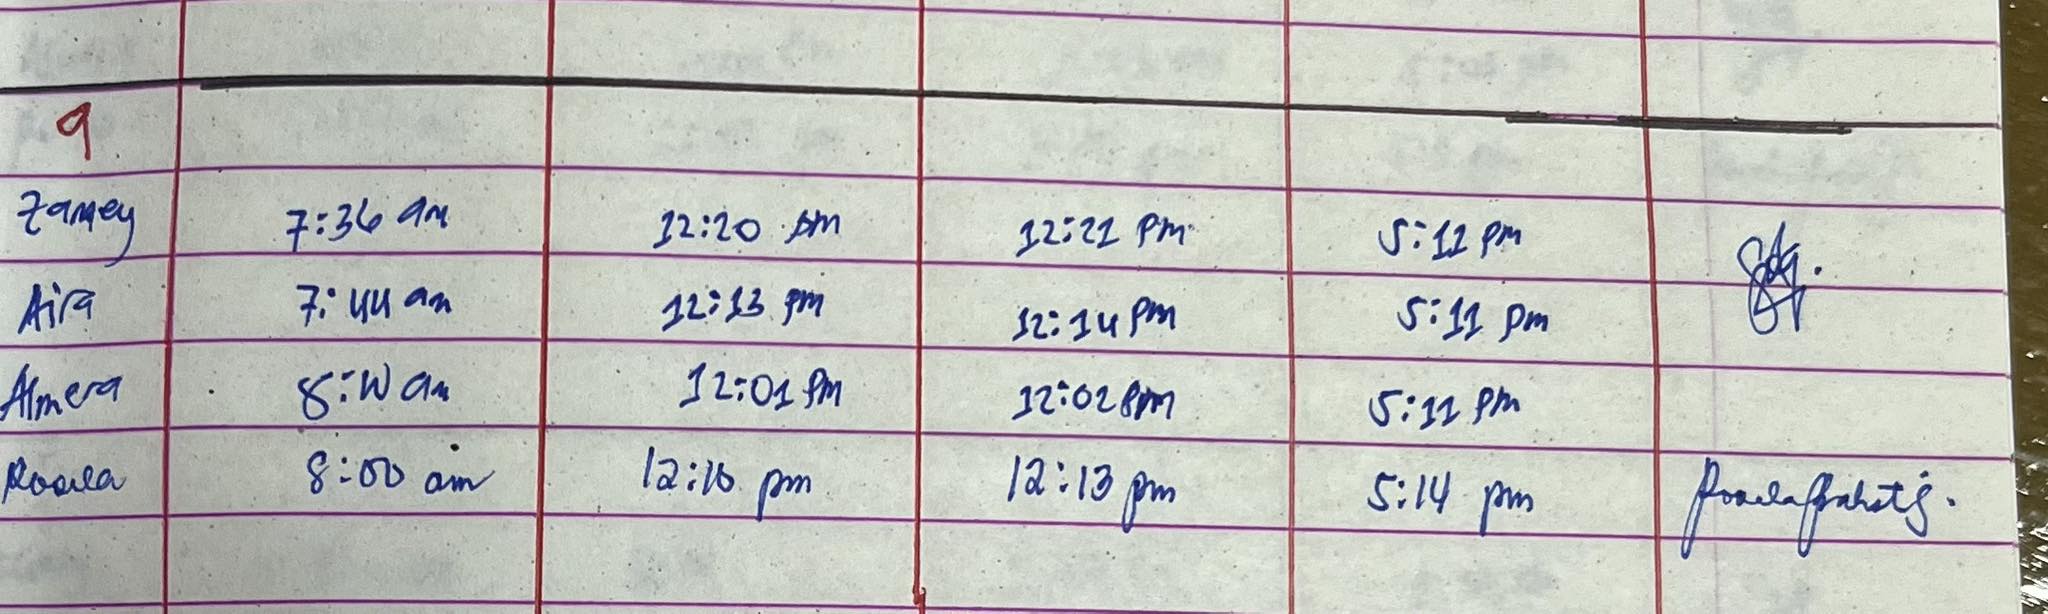 9
Zamey 7:36 am 12:20 pm 12:21 pm 5:11 pm
Aira 7:44 am 12:13 pm 12:14 pm 5:11 pm
Almera 8:10 am 12:01 pm 12:02 pm 5:11 pm
8:00 am 12:10 pm 12:13 pm 5:14 pm